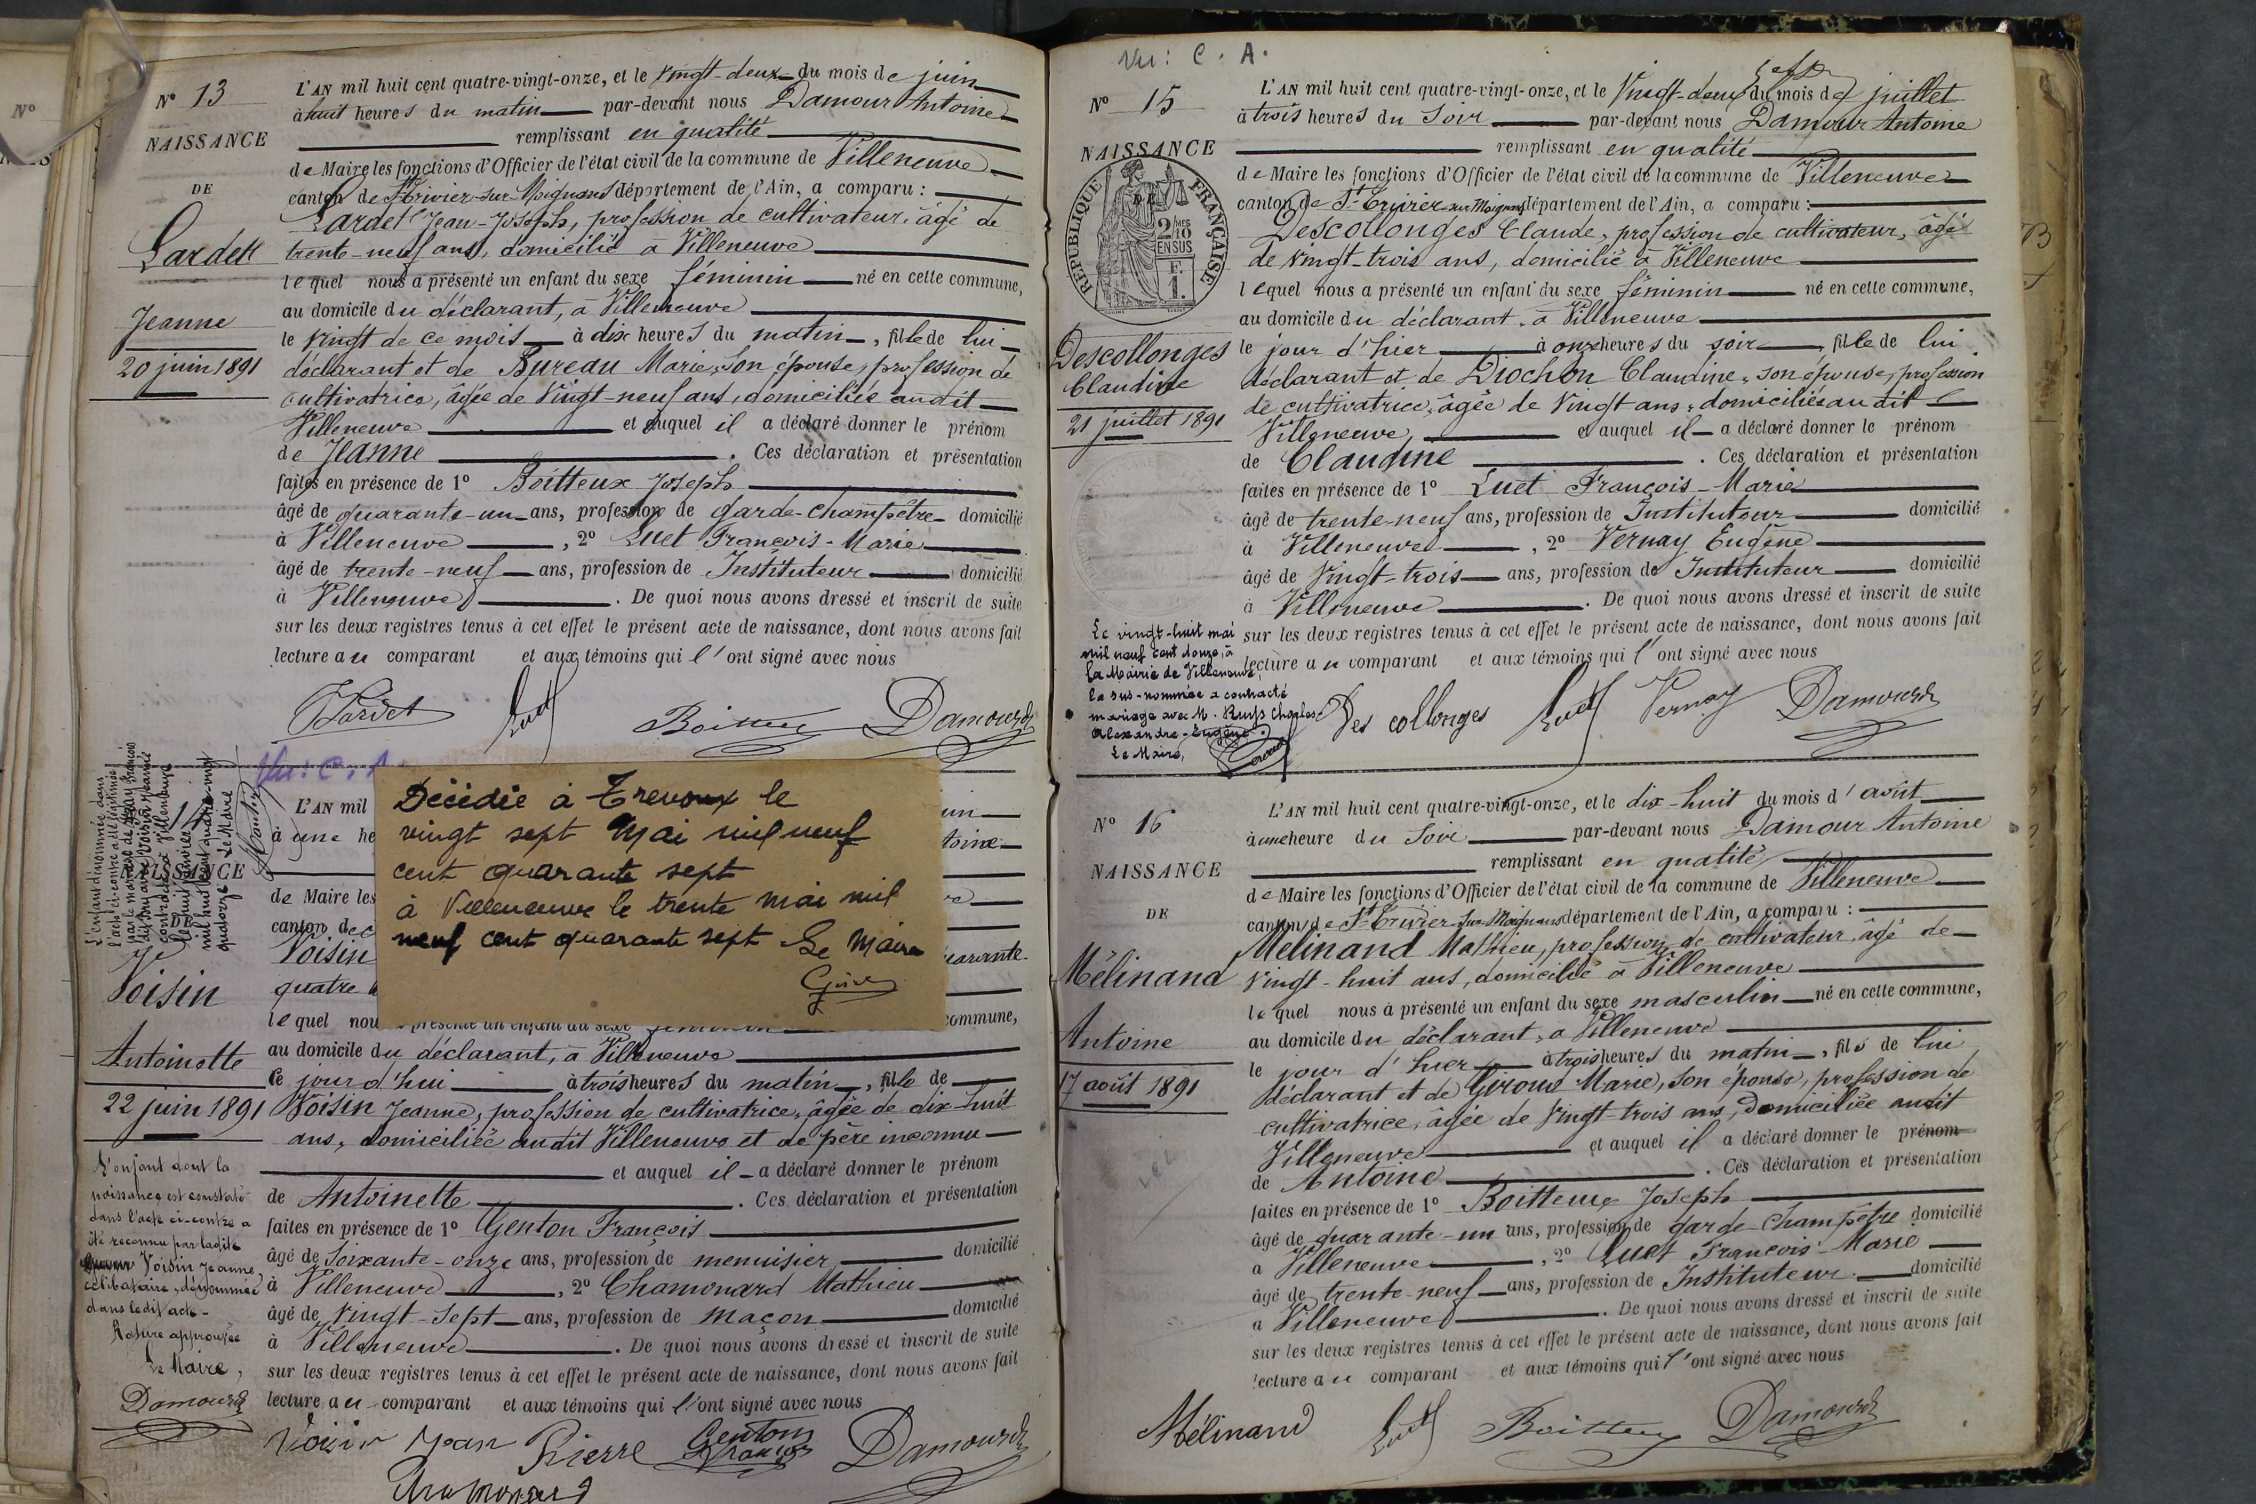 N° 13
NAISSANCE
DE
Lardet
Jeanne
20 juin 1891
L'AN mil huit cent quatre-vingt-onze, et le vingt-deux du mois de juin
à huit heures du matin par-devant nous Damour Antoine
remplissant en qualité
de Maire les fonctions d'Officier de l'état civil de la commune de Villeneuve
canton de St Trivier-sur-Moignans département de l'Ain, a comparu :
Lardet Jean-Joseph, profession de cultivateur, âgé de
trente-neuf ans, domicilié à Villeneuve
lequel nous a présenté un enfant du sexe féminin né en cette commune,
au domicile du déclarant, à Villeneuve
le vingt de ce mois à dix heures du matin, fille de lui
déclarant et de Bureau Marie, son épouse, profession de
cultivatrice, âgée de vingt-neuf ans, domiciliée audit
Villeneuve et auquel il a déclaré donner le prénom
de Jeanne . Ces déclaration et présentation
faites en présence de 1° Boitteux Joseph
âgé de quarante-un ans, profession de garde-champêtre domicilié
à Villeneuve, 2° Luet François-Marie
âgé de trente-neuf ans, profession de Instituteur domicilié
à Villeneuve . De quoi nous avons dressé et inscrit de suite
sur les deux registres tenus à cet effet le présent acte de naissance, dont nous avons fait
lecture au comparant et aux témoins qui l'ont signé avec nous
Lardet Luet Boitteux Damour
Vu : C. A.
14
NAISSANCE
DE
Voisin
Antoinette
22 juin 1891
L'enfant dénommée dans
l'acte ci-contre a été légitimée
par le mariage de
dit Duy avec Voisin Jeanne
contracté à Villeneuve
le huit janvier
mil huit cent quatre-vingt
quatorze Le Maire
L'AN mil
à une he
de Maire les
canton de
Voisin
quatre
lequel nous a présenté un enfant du sexe féminin commune,
Décédée à Trevoux le
vingt sept Mai mil neuf
cent quarante sept
à Villeneuve le trente mai mil
neuf cent quarante sept Le Maire
au domicile du déclarant, à Villeneuve
ce jourd'hui à trois heures du matin, fille de
Voisin Jeanne, profession de cultivatrice, âgée de dix-huit
ans, domiciliée audit Villeneuve et de père inconnu
et auquel il a déclaré donner le prénom
de Antoinette . Ces déclaration et présentation
faites en présence de 1° Genton François
âgé de soixante-onze ans, profession de menuisier domicilié
à Villeneuve, 2° Chamonard Mathieu
âgé de vingt-sept ans, profession de maçon domicilié
à Villeneuve . De quoi nous avons dressé et inscrit de suite
sur les deux registres tenus à cet effet le présent acte de naissance, dont nous avons fait
lecture au comparant et aux témoins qui l'ont signé avec nous
L'enfant dont la
naissance est constatée
dans l'acte ci-contre a
été reconnu par ladite
Voisin Jeanne
célibataire, dénommée
dans ledit acte -
Rature approuvée
Le Maire,
Damour
Voisin Jean Pierre Genton François Damour
Chamonard
Vu : C. A.
N° 15
NAISSANCE
DE
RÉPUBLIQUE FRANÇAISE
2/10 MES
EN SUS
F.
1.
Descollonges
Claudine
21 juillet 1891
L'AN mil huit cent quatre-vingt-onze, et le vingt-deux du mois de juillet
à trois heures du soir par-devant nous Damour Antoine
remplissant en qualité
de Maire les fonctions d'Officier de l'état civil de la commune de Villeneuve
canton de St Trivier-sur-Moignans département de l'Ain, a comparu :
Descollonges Claude, profession de cultivateur, âgé
de vingt-trois ans, domicilié à Villeneuve
lequel nous a présenté un enfant du sexe féminin né en cette commune,
au domicile du déclarant, à Villeneuve
le jour d'hier à onze heures du soir, fille de lui
déclarant et de Diochon Claudine, son épouse, profession
de cultivatrice, âgée de vingt ans, domiciliés au dit
Villeneuve, et auquel il a déclaré donner le prénom
de Claudine . Ces déclaration et présentation
faites en présence de 1° Luet François-Marie
âgé de trente-neuf ans, profession de Instituteur domicilié
à Villeneuve, 2° Vernay Eugène
âgé de vingt-trois ans, profession de Instituteur domicilié
à Villeneuve . De quoi nous avons dressé et inscrit de suite
sur les deux registres tenus à cet effet le présent acte de naissance, dont nous avons fait
lecture au comparant et aux témoins qui l'ont signé avec nous
Le vingt-huit mai
mil neuf cent donze, à
la Mairie de Villeneuve,
la sus-nommée a contracté
mariage avec M. Charles-
Alexandre-Eugène.
Le Maire,
Des collonges Luet Vernay Damour
N° 16
NAISSANCE
DE
Mélinand
Antoine
17 août 1891
L'AN mil huit cent quatre-vingt-onze, et le dix-huit du mois d'août
à une heure du soir par-devant nous Damour Antoine
remplissant en qualité
de Maire les fonctions d'Officier de l'état civil de la commune de Villeneuve
canton de St Trivier-sur-Moignans département de l'Ain, a comparu :
Mélinand Mathieu, profession de cultivateur, âgé de
vingt-huit ans, domicilié à Villeneuve
lequel nous a présenté un enfant du sexe masculin né en cette commune,
au domicile du déclarant, à Villeneuve
le jour d'hier à trois heures du matin, fils de lui
déclarant et de Giroud Marie, son épouse, profession de
cultivatrice, âgée de vingt-trois ans, domiciliée audit
Villeneuve et auquel il a déclaré donner le prénom
de Antoine . Ces déclaration et présentation
faites en présence de 1° Boitteux Joseph
âgé de quarante-un ans, profession de garde-champêtre domicilié
à Villeneuve, 2° Luet François-Marie
âgé de trente-neuf ans, profession de Instituteur domicilié
à Villeneuve . De quoi nous avons dressé et inscrit de suite
sur les deux registres tenus à cet effet le présent acte de naissance, dont nous avons fait
lecture au comparant et aux témoins qui l'ont signé avec nous
Mélinand Luet Boitteux Damour